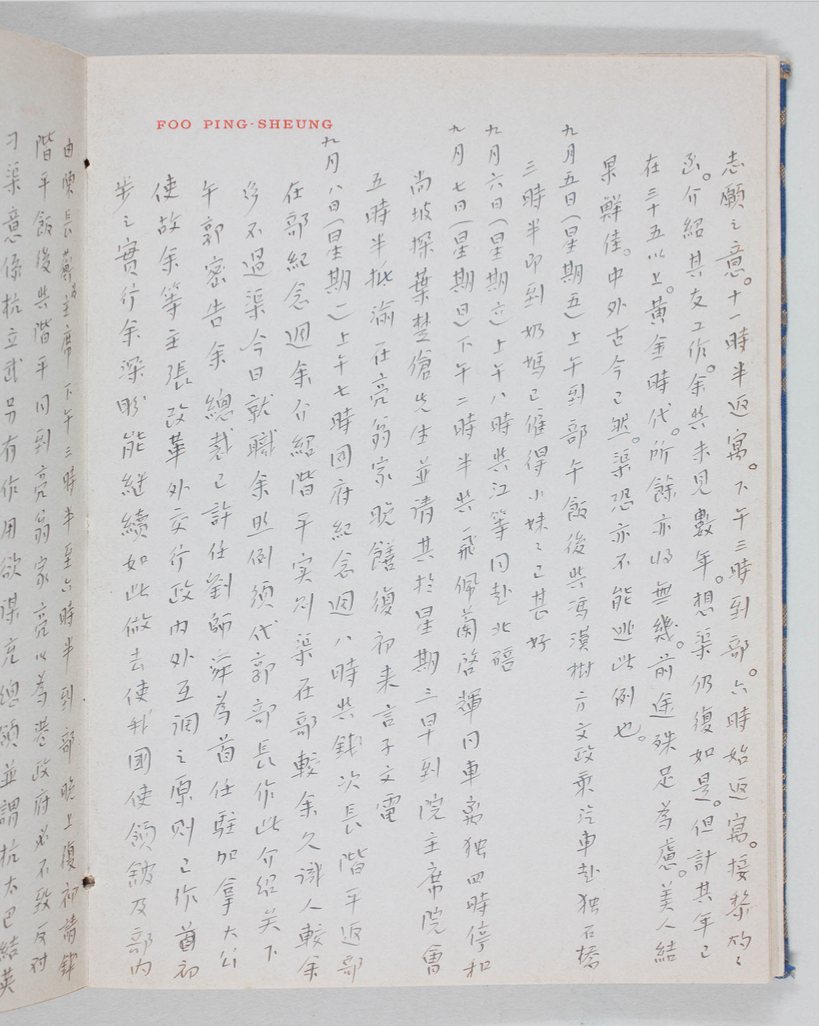 FOO PING-SHEUNG
志願之意。十一時半返寓。下午三時到部。六時始返寓。接黎灼灼
函。介紹其友工作。余與未見數年。想渠仍復如是。但計其年已
在三十五以上。黃金時代。所餘亦將無幾。前途殊足為慮。美人結
果鮮佳。中外古今已然。渠恐亦不能逃此例也。
九月五日(星期五)上午到部午飯後與馮漢樹方文政乘汽車赴独石橋
三時半即到奶媽已僱得小妹妹已甚好
九月六日(星期六)上午八時與江等同赴北碚
九月七日(星期日)下午二時半與飛佩蘭啓輝同車离独四時停和
尚坡探葉楚傖先生並請其於星期三早到院主席院會
五時半抵渝在亮翁家晚饍復初来言子文電
九月八日(星期一)上午七時國府紀念週八時與錢次長階平返部
在部紀念週余介紹階平实則渠在部較余久識人較余
多不過渠今日就職余照例須代郭部長作此介紹关下
午郭密告余總裁已許任劉師舜為首任駐加拿大公
使故余等主張改革外交行政内外互調之原則已作首初
步之實行余深盼能継續如此做去使我國使領舘及部内
由陳長蘅主席下午三時半至六時半到部晚上復初請錢
階平飯後與階平同到亮翁家亮以為港政府必不致反对
刁渠意係杭立武另有作用欲謀充總領並謂杭太巴結英